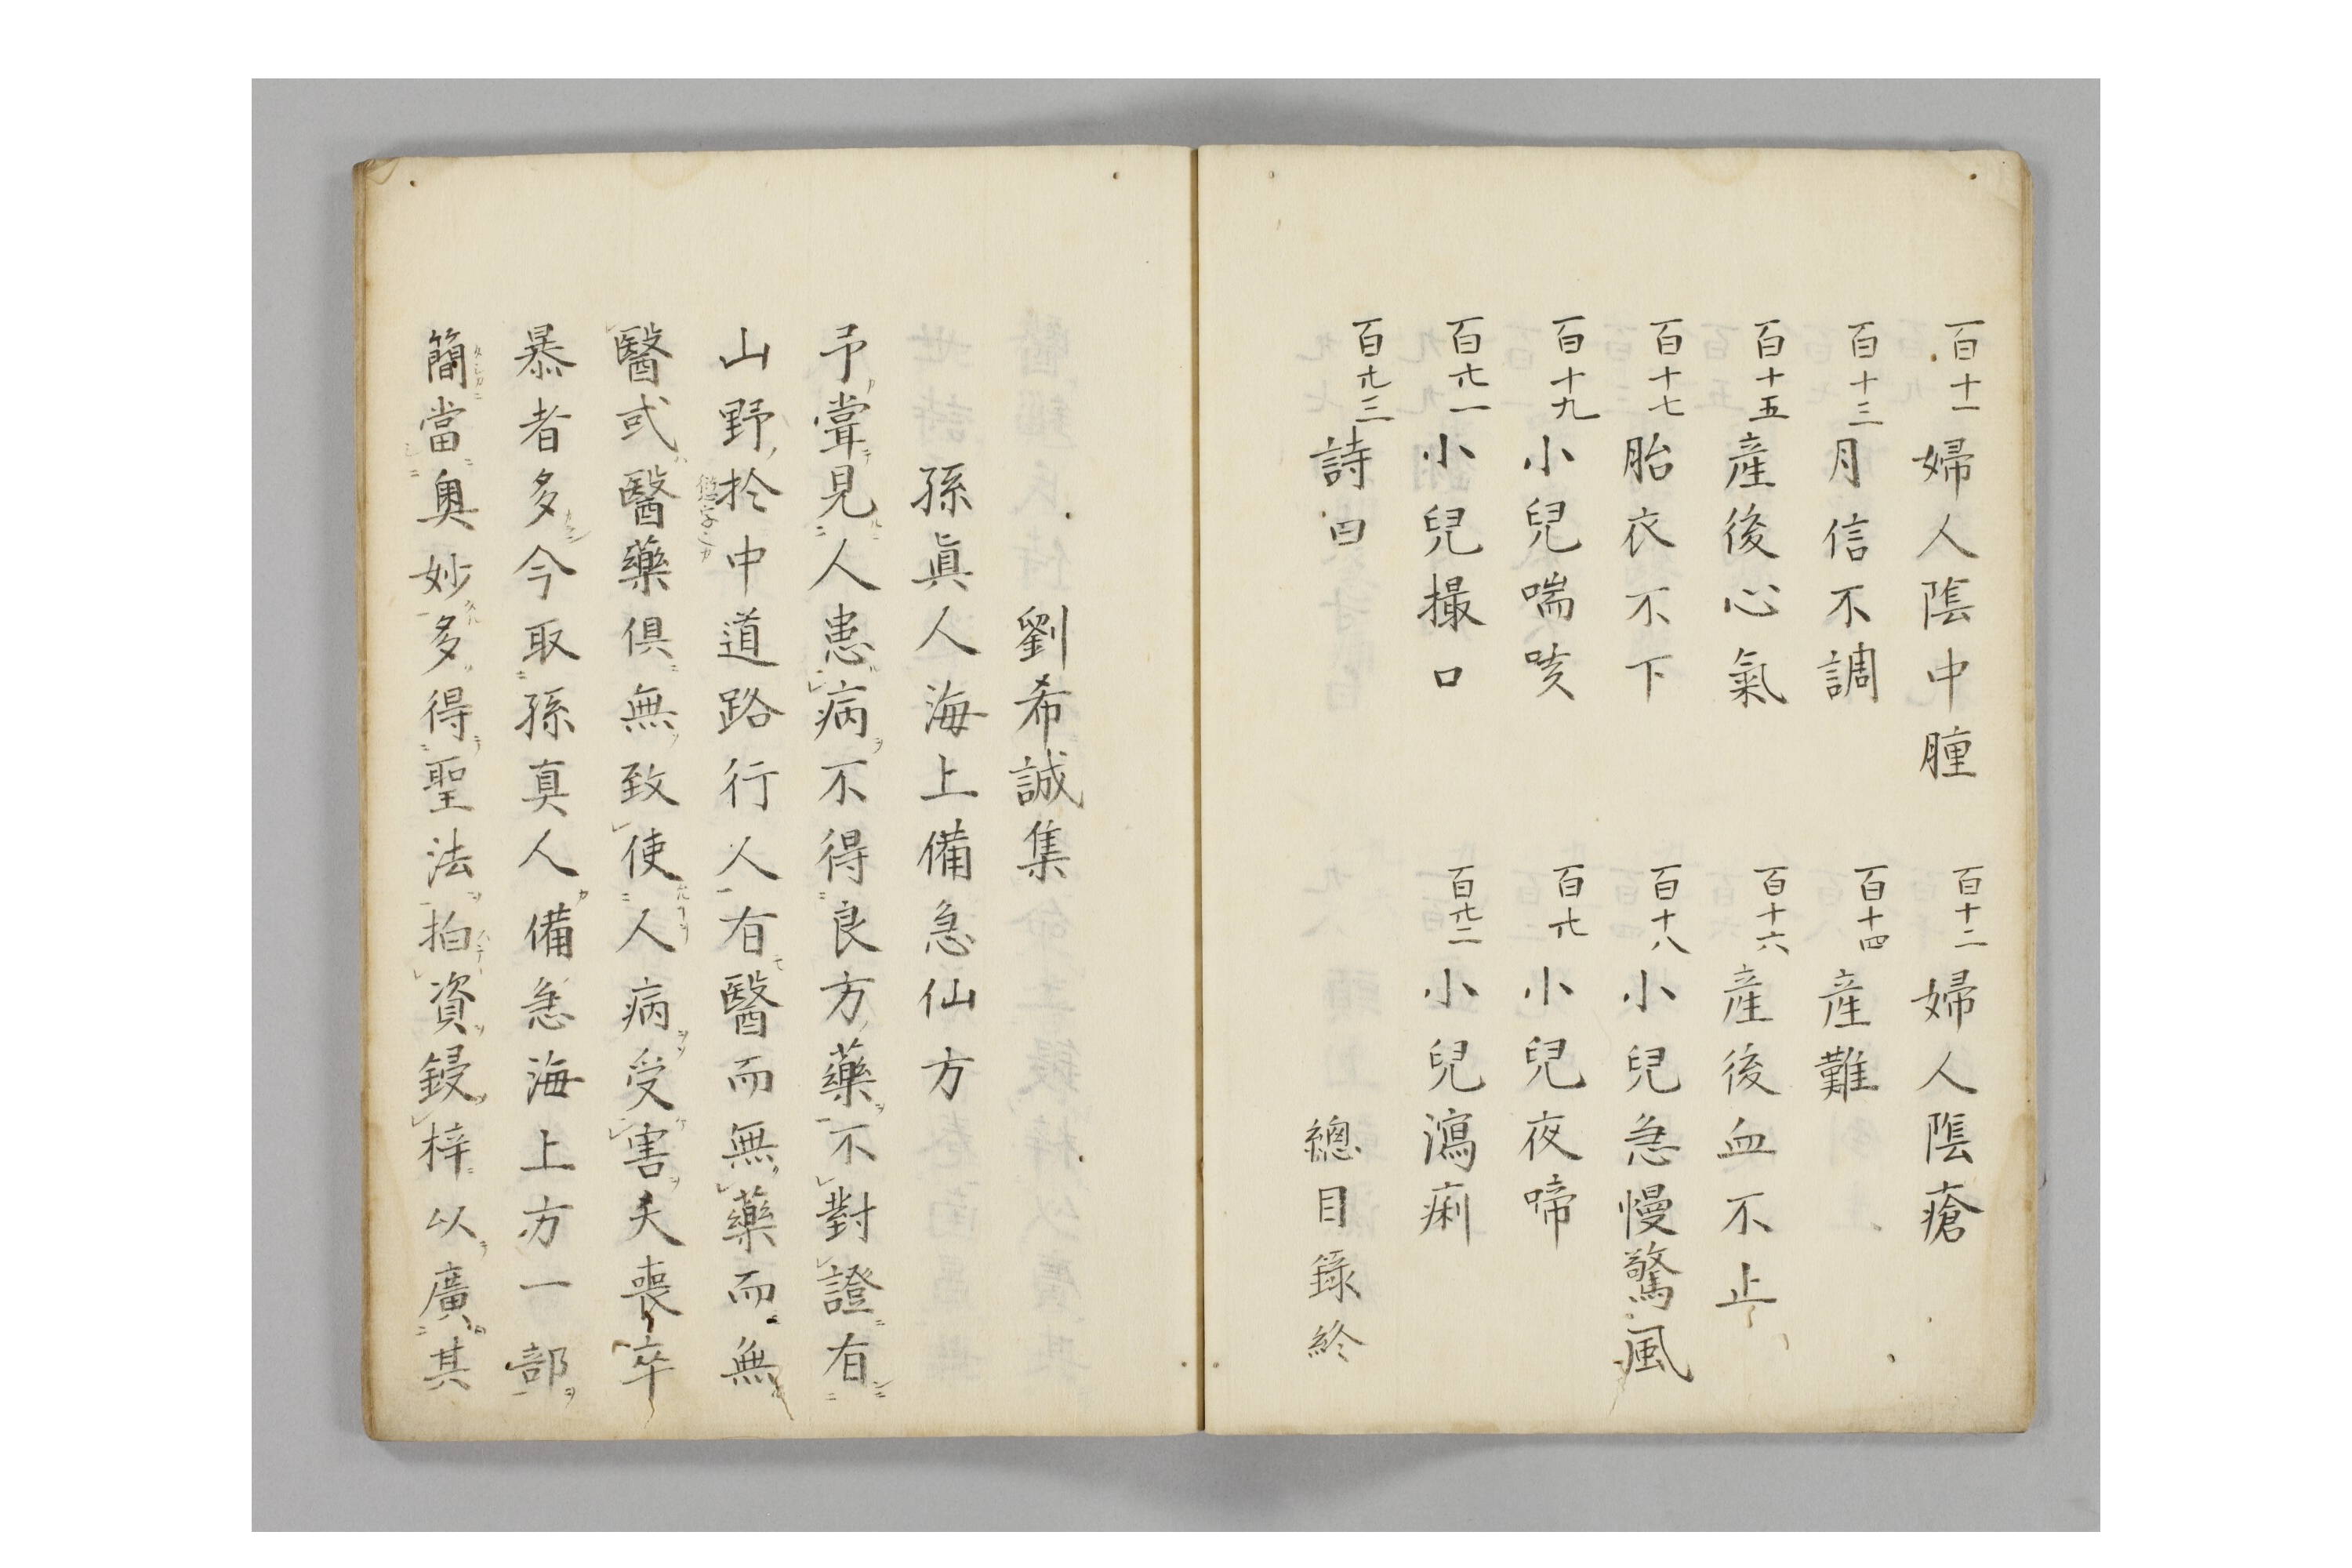 百十一婦人陰中腫 百十二婦人陰瘡
百十三月信不調 百十四産難
百十五産後心氣 百十六産後血不止
百十七胎衣不下 百十八小兒急慢驚風
百十九小兒喘咳 百廿小兒夜啼
百廿一小兒撮口 百廿二小兒瀉痢
百廿三詩四 總目錄終
劉希誠集
孫眞人海上備急仙方
予甞見人患病不得良方藥不對證有
山野於中道路行人有醫而無藥而無
醫或醫藥俱無致使人病受害夭喪卒
暴者多今取孫真人備急海上方一部
簡當奥妙多得聖法拍資鋟梓以廣其